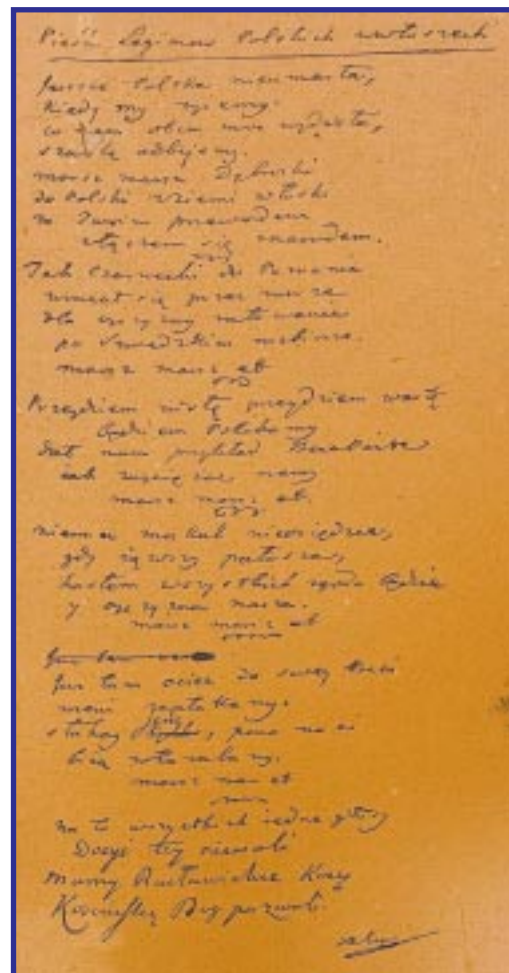 Pieśń Legionow Polskich we włoszech
Jeszcze Polska nie umarła,
kiedy my żyiemy
co nam obca moc wydarła,
szablą odbijemy.
marsz marsz Dąbroski
do Polski z ziemi włoski
za Twoim przewodem
złączem się z narodem.
Jak Czarnecki do Poznania
wracał się przez morze
dla oyczyzny ratowania
po Szwedzkim
marsz marsz et
Przeydziem wisłę przeydziem wartę
będziem Polakami
dał nam przykład Bonaparte
iak zwyciężać mamy
marsz marsz et.
niemiec moskal nieosiędzie,
gdy
hasłem wszystkich zgoda będzie
y oyczyzna nasza.
marsz marsz et
Już tam ociec do swey Basi
mowi zapłakany
słuchay, pono nasi
biią w tarabany.
marsz et
na to wszystkich iedne głosy
Dosyć tey niewoli
Mamy Racławickie Kosy
Kosciuszkę Bog pozwoli.